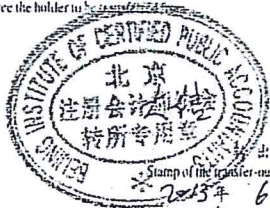 ree the holder to be transferred from
BEIJING INSTITUTE OF CERTIFIED PUBLIC ACCOUNTANTS
北京
注册会计师协会
转所专用章
Stamp of the transfer-ou
2013年 6